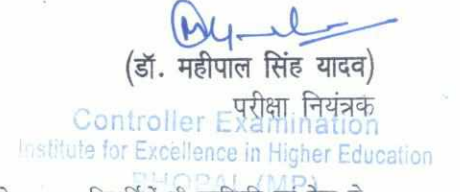 (डॉ. महीपाल सिंह यादव)
परीक्षा नियंत्रक
Controller Examination
Institute for Excellence in Higher Education
BHOPAL (MP)